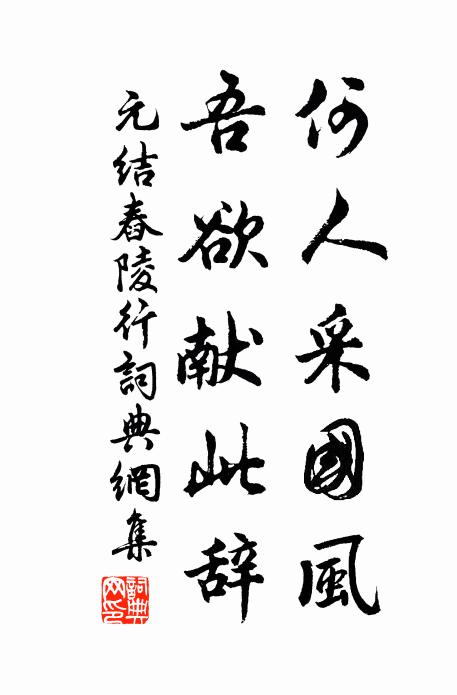 何人采國風
吾欲献此辞
元结舂陵行詞典網集
詞典网印